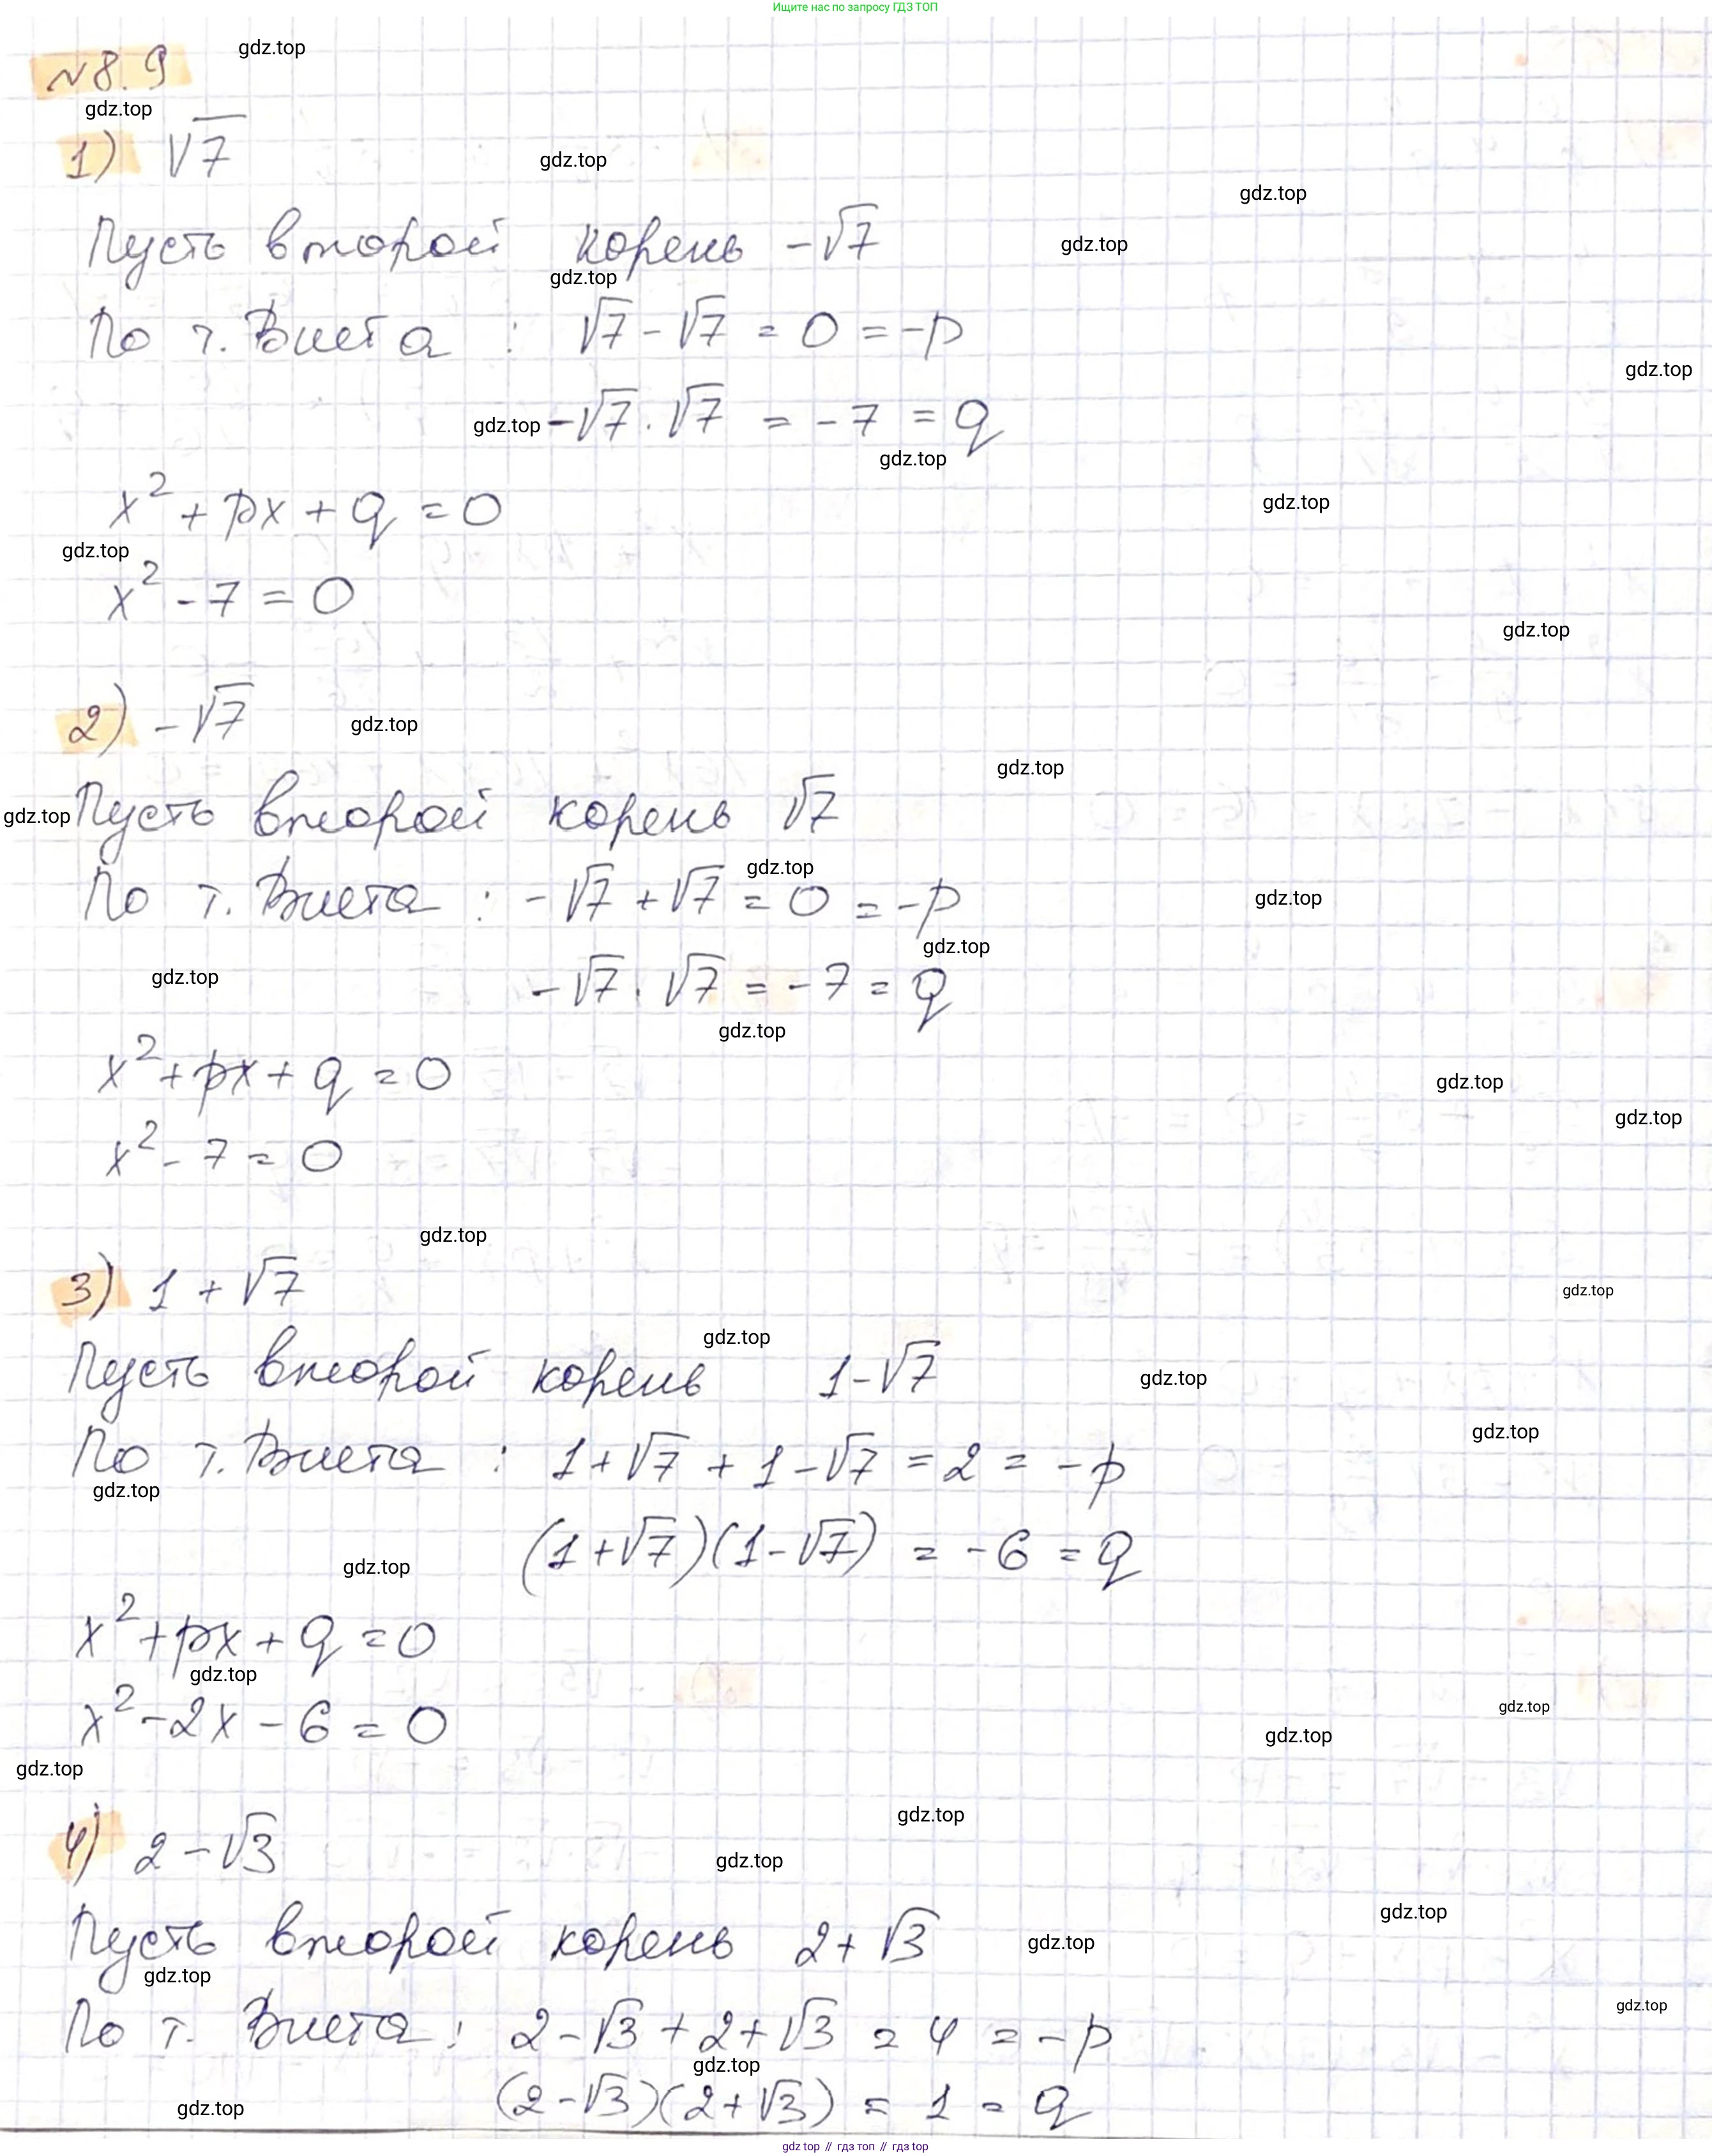 Ищите нас по запросу ГДЗ ТОП
N8.9
gdz.top
gdz.top
1) √7
gdz.top
gdz.top
Пусть второй корень -√7
gdz.top
gdz.top
По т. Виета : √7 - √7 = 0 = -p
gdz.top
gdz.top
-√7 · √7 = -7 = q
gdz.top
x² + px + q = 0
gdz.top
gdz.top
x² - 7 = 0
gdz.top
2) -√7
gdz.top
gdz.top
gdz.top
Пусть второй корень √7
gdz.top
По т. Виета : -√7 + √7 = 0 = -p
gdz.top
gdz.top
gdz.top
-√7 · √7 = -7 = q
gdz.top
x² + px + q = 0
gdz.top
gdz.top
x² - 7 = 0
gdz.top
3) 1 + √7
gdz.top
gdz.top
Пусть второй корень 1-√7
gdz.top
gdz.top
По т. Виета : 1+√7 + 1-√7 = 2 = -p
gdz.top
(1+√7)(1-√7) = -6 = q
gdz.top
x² + px + q = 0
gdz.top
x² - 2x - 6 = 0
gdz.top
gdz.top
gdz.top
4) 2 - √3
gdz.top
gdz.top
gdz.top
Пусть второй корень 2 + √3
gdz.top
gdz.top
gdz.top
По т. Виета : 2 - √3 + 2 + √3 = 4 = -p
gdz.top
(2-√3)(2+√3) = 1 = q
gdz.top
gdz.top // гдз топ // гдз top